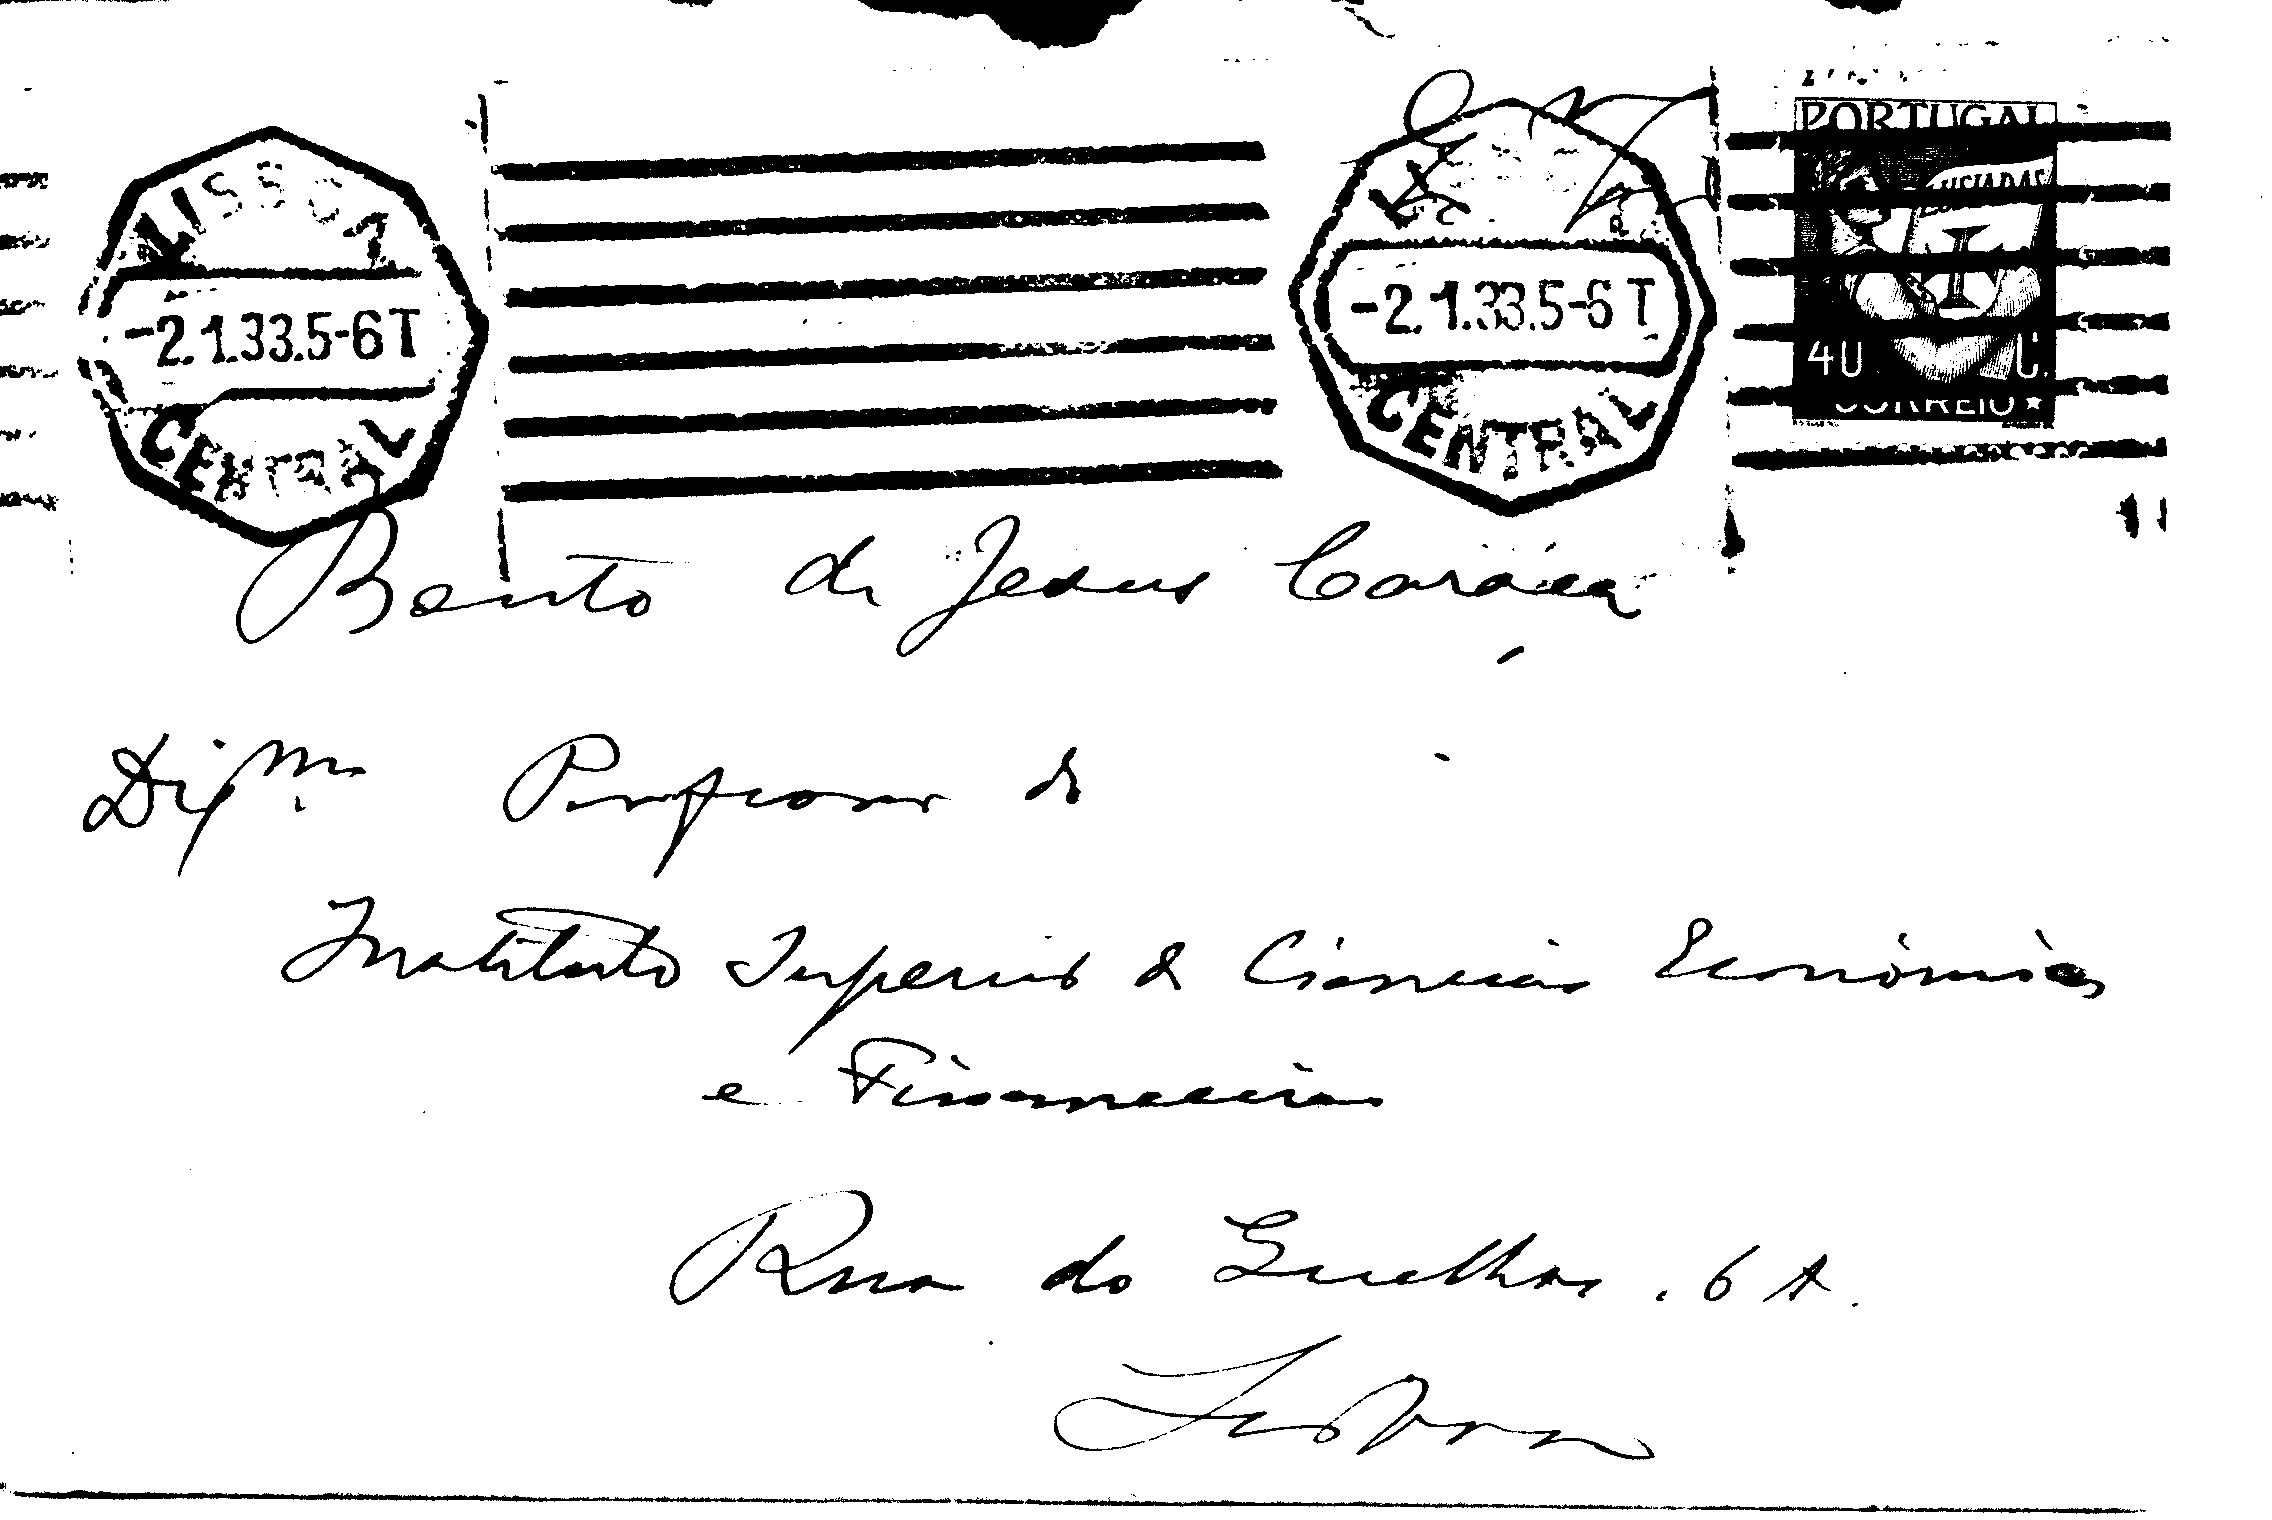 LISBOA
-2.1.33.5-6T
CENTRAL
-2.1.33.5-6 T
CENTRAL
PORTUGAL
LUSIADAS
40 C.
CORREIO
Bento de Jesus Caraça
Dig.mo Professor do
Instituto Superior de Ciencias Económicas
e Financeiras
Rua do Quelhas. 6 A.
Lisboa